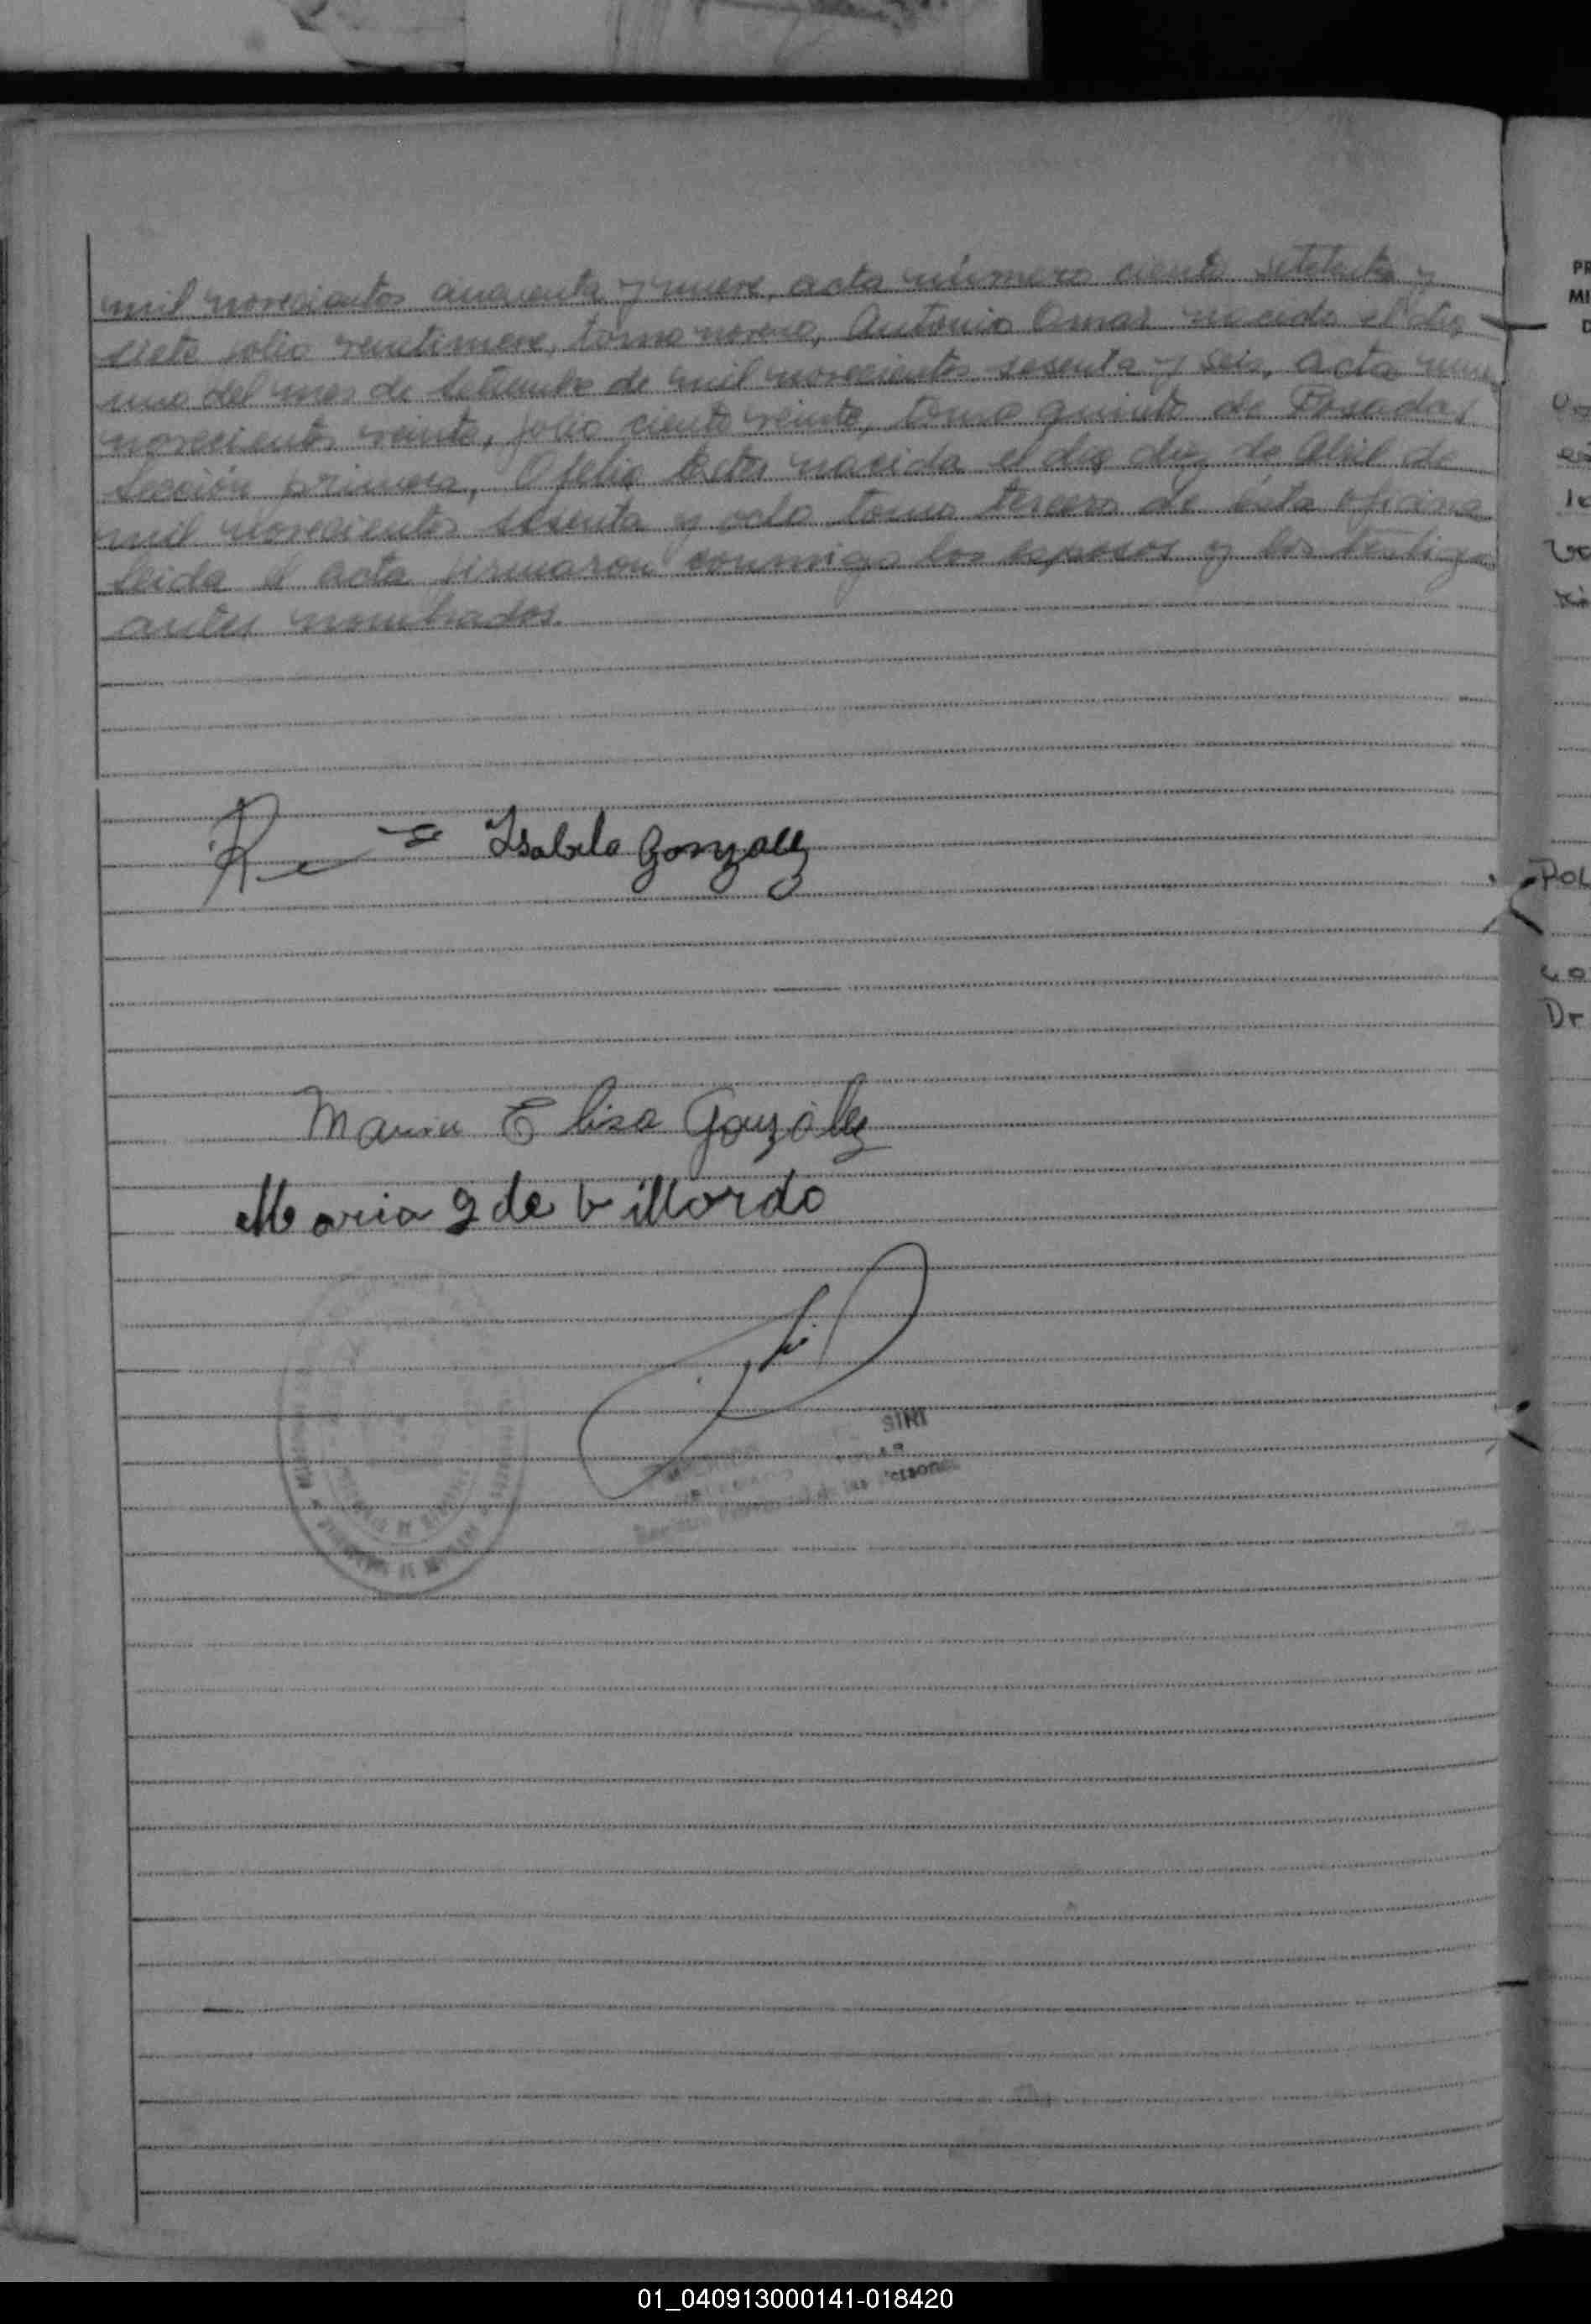 mil novecientos cincuenta y nueve, acta número ciento setetenta y
siete folio veintinueve, tomo noveno, Antonio Omar nacido el día
uno del mes de Setiembre de mil novecientos sesenta y seis, acta
novecientos veinte, folio ciento veinte, tomo quinto de Posadas
Sección primera, Ofelia nacida el día diez de Abril de
mil novecientos sesenta y ocho tomo tercero de ésta oficina
leida el acta firmaron conmigo los esposos y los testigos
antes nombrados.
Isabela Gonzalez
Maria Elisa González
Maria g de villordo
SINI
Registro Provincial de las Personas
PR
MI
D
POL
co
Dr
01_040913000141-018420